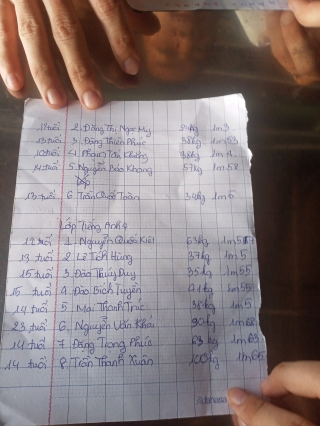 11 tuổi 2. Đặng Thị Ngọc My 24kg 1m3
13 tuổi 3. Đặng Thiên Phúc 38kg 1m53
10 tuổi 4. Phạm Tấn Khang 38kg 1m4
14 tuổi 5. Nguyễn Bảo Khang 57kg 1m58
Lớp
13 tuổi 6. Trần Quốc Toàn 34kg 1m5
Lớp Tiếng Anh 4
12 tuổi 1. Nguyễn Quốc Kiệt 63kg
13 tuổi 2. Lê Tích Hùng 37kg 1m5
15 tuổi 3. Đào Thúy Duy 35kg 1m55
15 tuổi 4. Đào Bích Tuyền 41kg 1m55
14 tuổi 5. Mai Thanh Trúc 38kg 1m5
23 tuổi 6. Nguyễn Văn Khải 90kg 1m68
14 tuổi 7. Đặng Trọng Phúc 63kg 1m63
14 tuổi 8. Trần Thanh Xuân 100kg 1m65